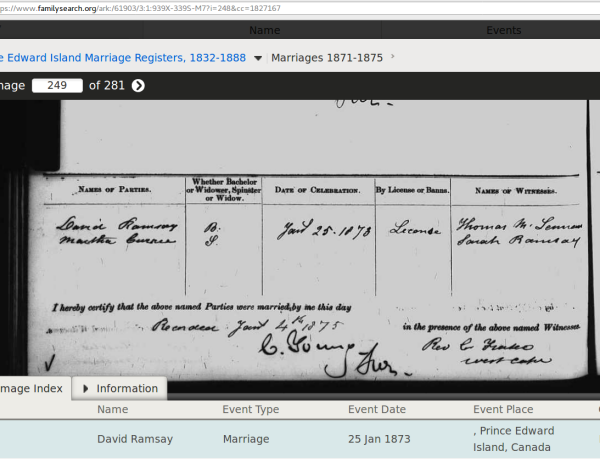 ps://www.familysearch.org/ark:/61903/3:1:939X-339S-M7?i=248&cc=1827167
Name Events
e Edward Island Marriage Registers, 1832-1888 Marriages 1871-1875
mage 249 of 281
NAMES OF PARTIES.
Whether Bachelor or Widower, Spinster or Widow.
DATE OF CELEBRATION.
By License or Banns.
NAMES OF WITNESSES.
David Ramsay B. Jany 25. 1873 License Thomas Mc
Martha Currie S. Sarah Ramsay
I hereby certify that the above named Parties were married by me this day
Jany 4th 1875
in the presence of the above named Witnesses
C. Young
Rev C. Fraser
west cape
mage Index Information
Name Event Type Event Date Event Place
David Ramsay Marriage 25 Jan 1873 , Prince Edward
Island, Canada